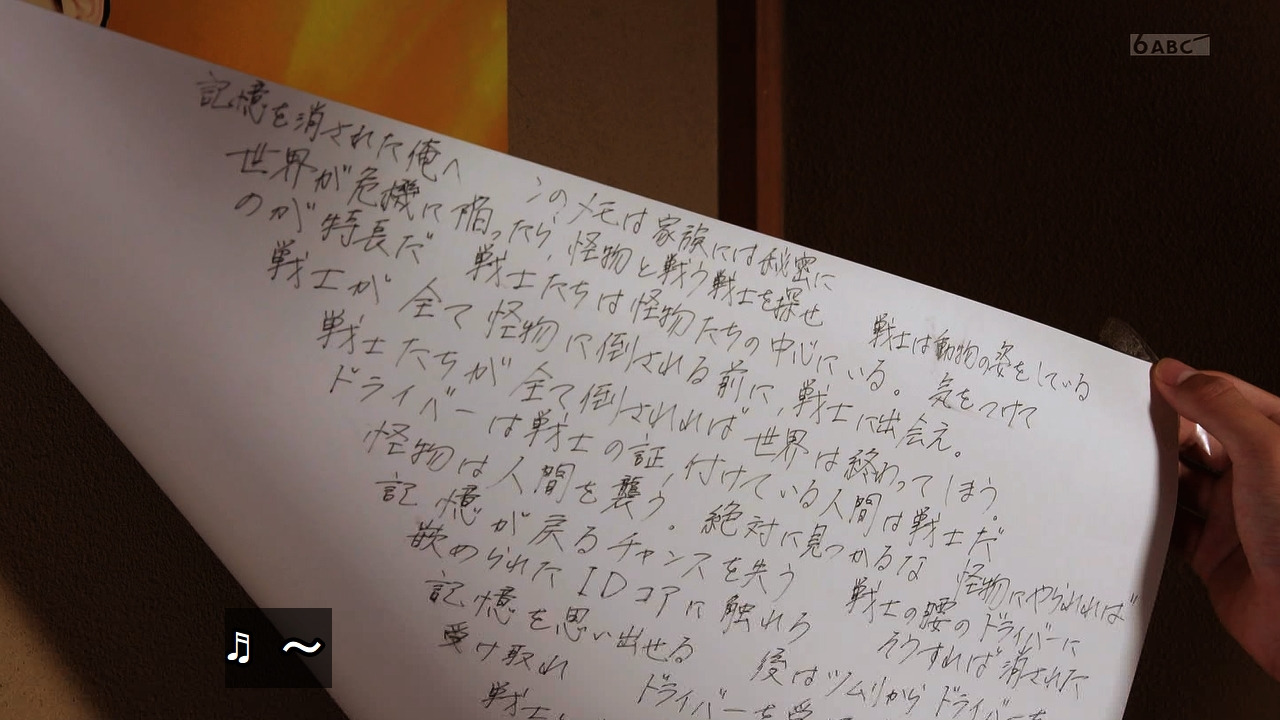 6 ABC
記憶を消された俺へ　このメモは家族には秘密に
世界が危機に陥ったら、怪物と戦う戦士を探せ　戦士は動物の姿をしている
のが特長だ　戦士たちは怪物たちの中心にいる。気をつけて
戦士が全て怪物に倒される前に、戦士に出会え。
戦士たちが全て倒されれば世界は終わってしまう。
ドライバーは戦士の証、付けている人間は戦士だ
怪物は人間を襲う。絶対に見つかるな　怪物にやられれば
記憶が戻るチャンスを失う　戦士の腰のドライバーに
嵌められたIDコアに触れろ　そうすれば消された
記憶を思い出せる　後はツムリからドライバーを
受け取れ　ドライバーを受
戦士
♬ 〜